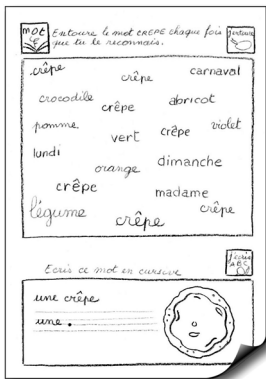 mot
Entoure le mot CRÊPE chaque fois
que tu le reconnais.
j'entoure
crêpe
crêpe
carnaval
crocodile
crêpe
abricot
pomme
vert
crêpe
violet
lundi
orange
dimanche
crêpe
madame
légume
crêpe
crêpe
j'écris
a B C
Ecris ce mot en cursive
une crêpe
une .